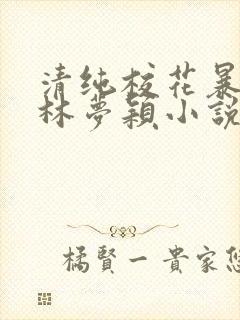 清纯校花暴
林夢穎小説
橘賢一貴家悠